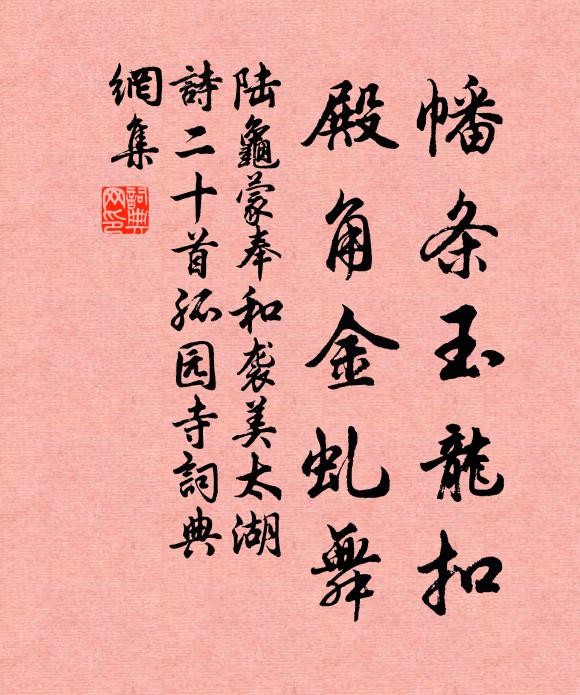 幡条玉龍扣
殿角金虬舞
陆龜蒙奉和袭美太湖
詩二十首孤园寺詞典
網集
詞典网印